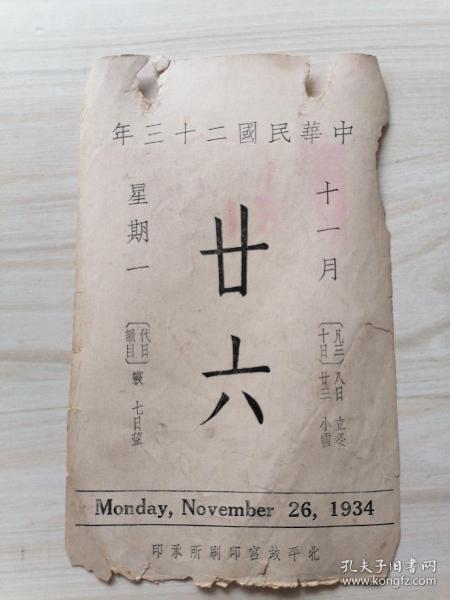 中華民國二十三年
十一月
〔凡三十日〕
八日 立冬
廿三 小雪
廿六
星期一
〔代日韻目〕
寢 七日望
Monday, November 26, 1934
北平故宮印刷所承印
孔夫子旧书网
www.kongfz.com